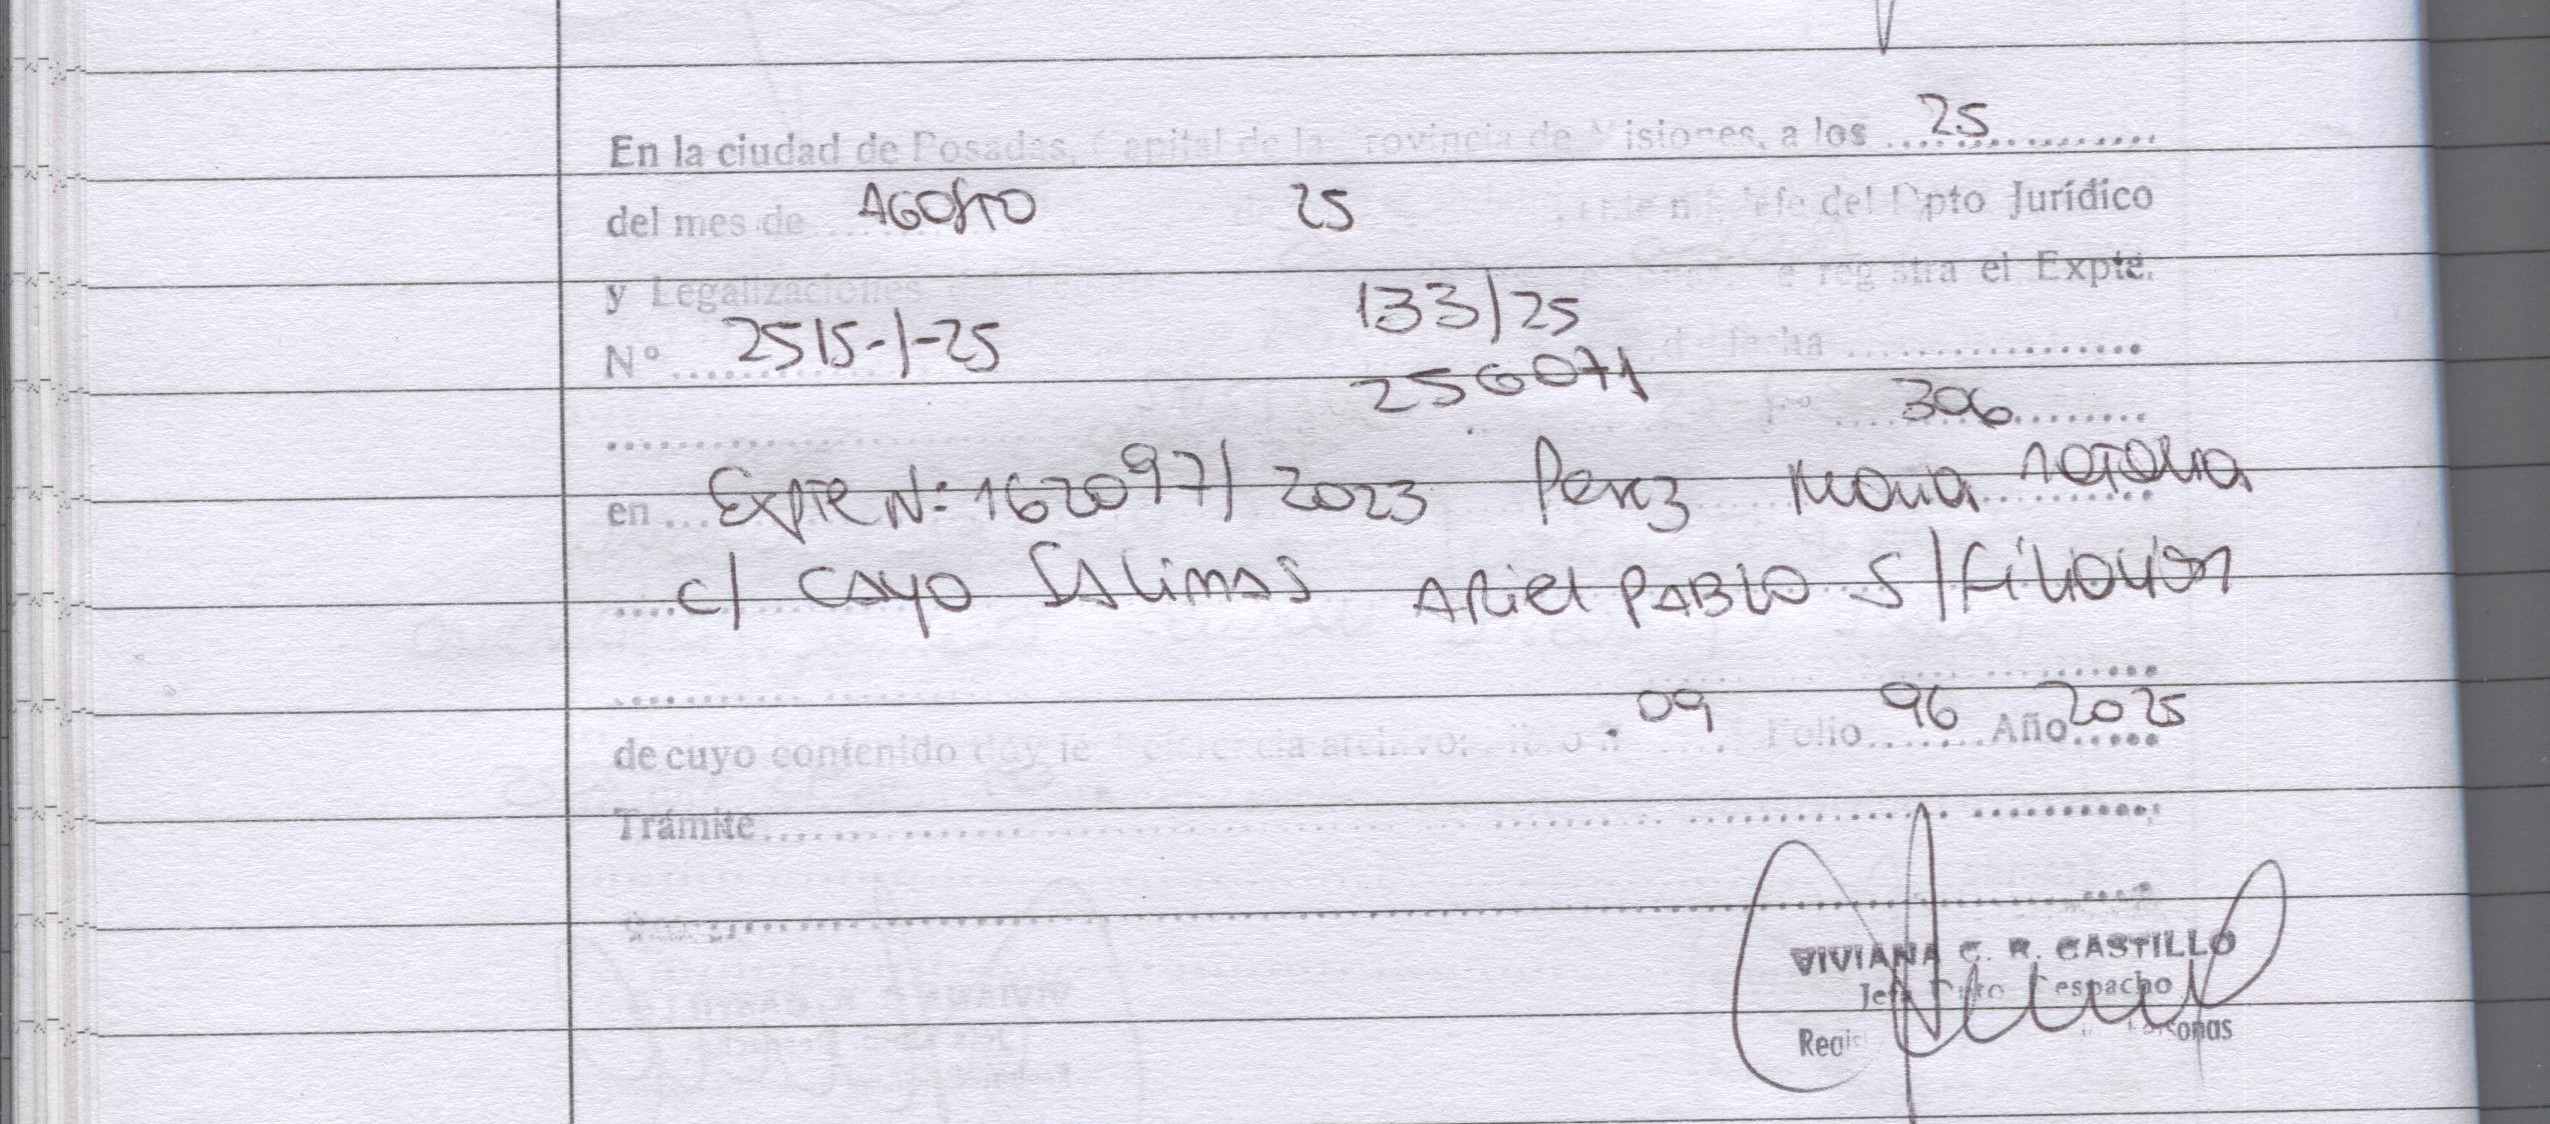 En la ciudad de Posadas, Capital de la Provincia de Misiones, a los 25
del mes de AGOSTO 25 Jefe del Dpto Jurídico
y Legalizaciones registra el Expte.
Nº 2515-1-25 133/25 fecha
256071 Fº 306
en Expte N: 162097/2023 Perez Maria Natalia
c/ CAYO SALINAS ARiel PABLO S/Filiación
de cuyo contenido doy fe 09 Folio 96 Año 2025
Trámite
VIVIANA C. R. CASTILLO
Jefe Dpto Despacho
Personas